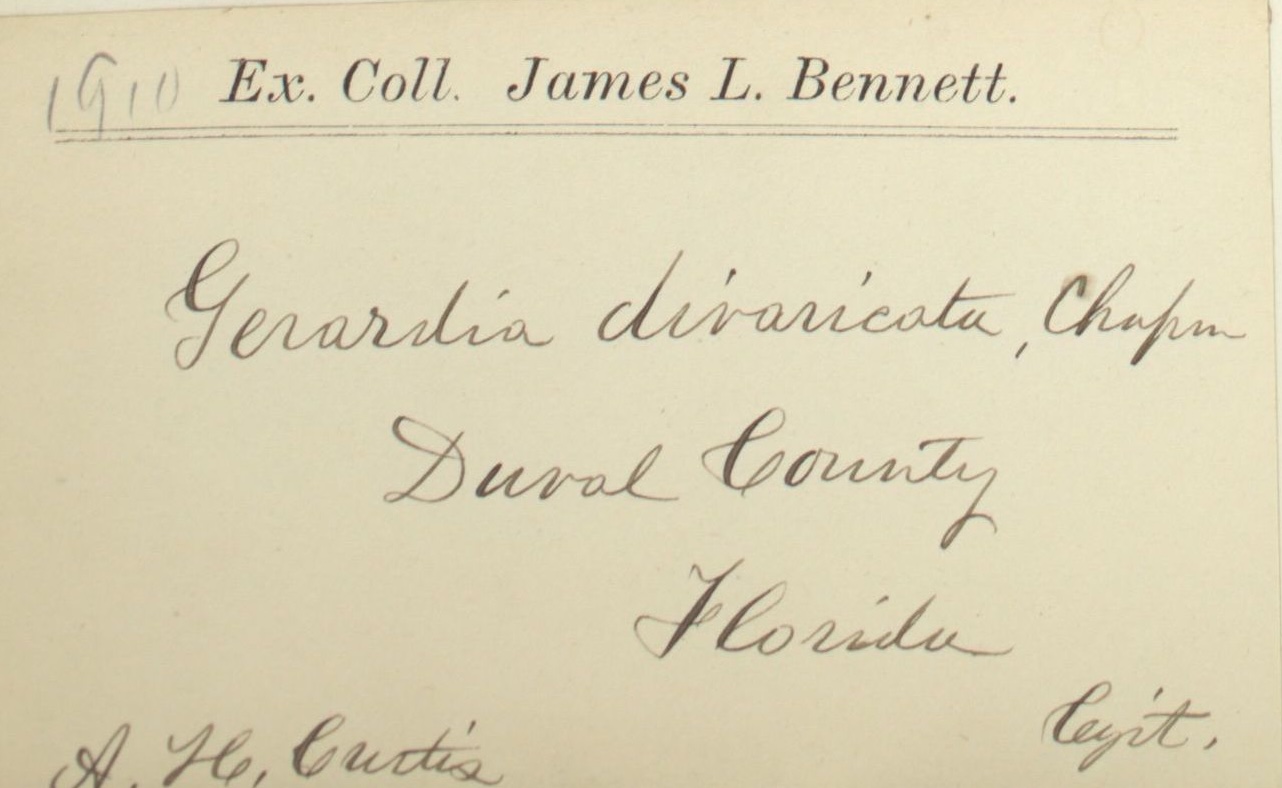 1910 Ex. Coll. James L. Bennett.
Gerardia divaricata, Chapm
Duval County
Florida
A. H. Curtis